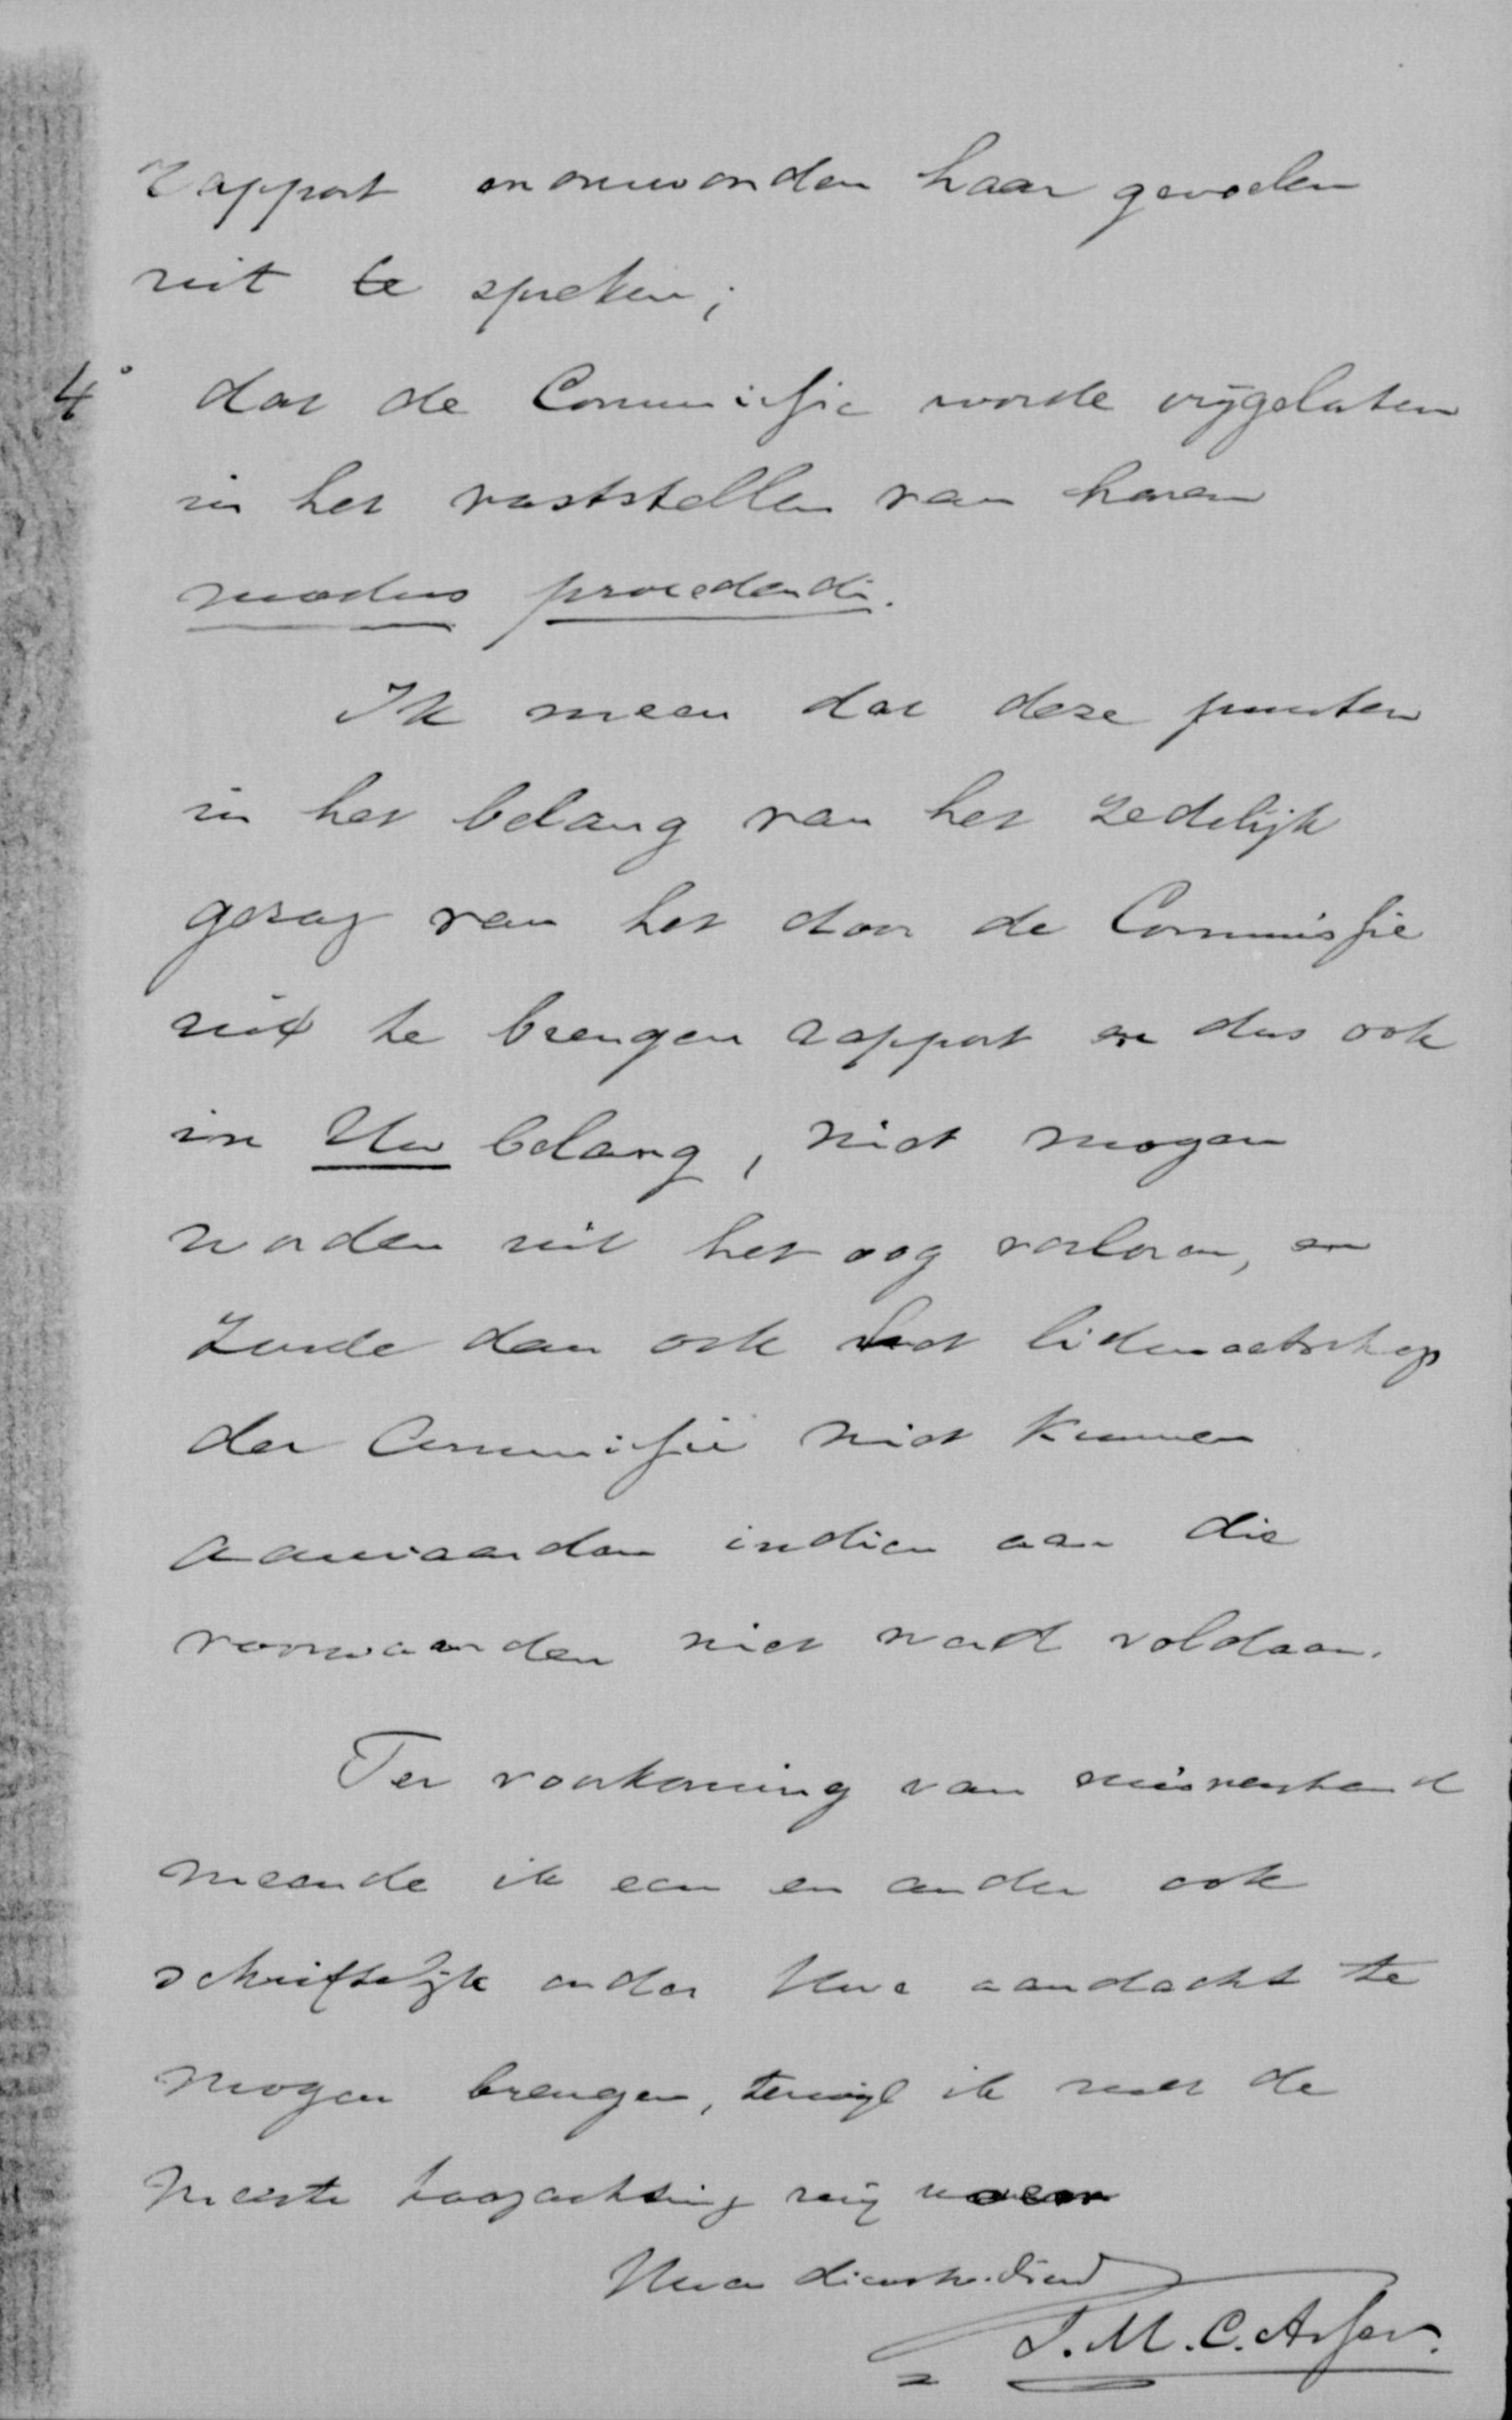 rapport onomwonden haar gevoelen
uit te spreken;
4° dat de Commissie worde vrijgelaten
in het vaststellen van haren
modus procedendi.
Ik meen dat deze punten
in het belang van het zedelijk
gezag van het door de Commissie
uit te brengen rapport en dus ook
in Uw belang, niet mogen
worden uit het oog verloren, en
zoude dan ook het lidmaatschap
der Commissie niet kunnen
aanvaarden indien aan die
voorwaarden niet werd voldaan.
Ter voorkoming van misverstand
meende ik een en ander ook
schriftelijk onder Uwe aandacht te
mogen brengen, terwijl ik met de
meeste hoogachting mij noem
Uwen dienstw. dienr
T. M. C. Asser.